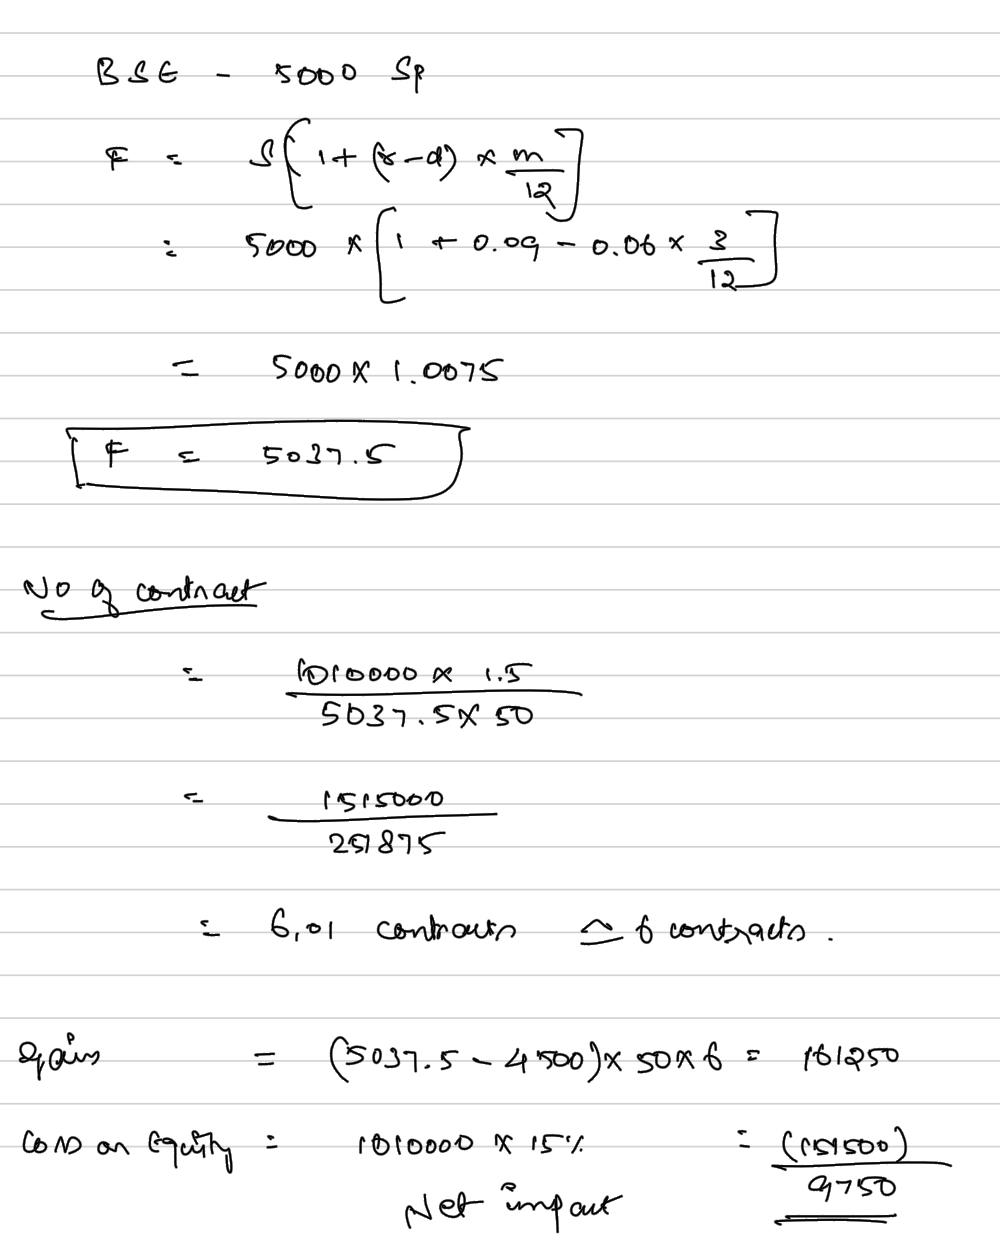 BSE - 5000 Sp
F = S[1 + (r-d) × m/12]
= 5000 × [1 + 0.09 - 0.06 × 3/12]
= 5000 × 1.0075
F = 5037.5
No of contract
= 1010000 × 1.5 / 5037.5 × 50
= 1515000 / 251875
= 6.01 contracts ≃ 6 contracts.
gains = (5037.5 - 4500) × 50 × 6 = 161250
Loss on Equity = 1010000 × 15% = (151500)
Net impact 9750